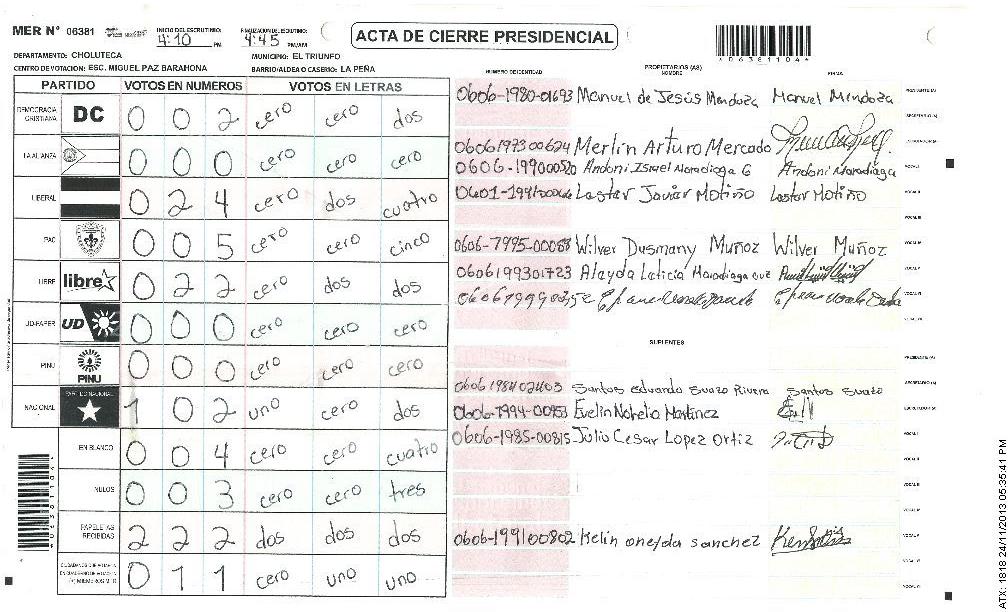 MER Nº 06381
INICIO DEL ESCRUTINIO: 4:10 PM
FINALIZACION DEL ESCRUTINIO: 4:45 PM/AM
ACTA DE CIERRE PRESIDENCIAL
*06381104*
DEPARTAMENTO: CHOLUTECA
MUNICIPIO: EL TRIUNFO
CENTRO DE VOTACION: ESC. MIGUEL PAZ BARAHONA
BARRIO/ALDEA O CASERIO: LA PEÑA
PARTIDO VOTOS EN NUMEROS VOTOS EN LETRAS
DEMOCRACIA CRISTIANA DC 0 0 2 cero cero dos
LA ALIANZA 0 0 0 cero cero cero
LIBERAL 0 2 4 cero dos cuatro
PAC 0 0 5 cero cero cinco
LIBRE libre 0 2 2 cero dos dos
UD-FAPER UD 0 0 0 cero cero cero
PINU PINU 0 0 0 cero cero cero
NACIONAL PARTIDO NACIONAL 1 0 2 uno cero dos
EN BLANCO 0 0 4 cero cero cuatro
NULOS 0 0 3 cero cero tres
PAPELETAS RECIBIDAS 2 2 2 dos dos dos
0 1 1 cero uno uno
NUMERO DE IDENTIDAD PROPIETARIOS (AS) NOMBRE FIRMA
0606-1980-01693 Manuel de Jesús Mendoza Manuel Mendoza
0606197300624 Merlin Arturo Mercado
0606-199000520 Andoni Israel Moradiaga G Andoni Moradiaga
Lastor Javier Motiño Lastor Motiño
Wilver Dusmany Muñoz Wilver Muñoz
0606199301723 Alayda Laticia
SUPLENTES
0606198402403 Santos Eduardo Suazo Rivera Santos Suazo
0606-1994-00953 Evelin Martinez
0606-1985-00815 Julio Cesar Lopez Ortiz
0606-199100802 Kelin oneyda sanchez
*06381104*
ATX: 1818 24/11/2013 05:35:41 PM